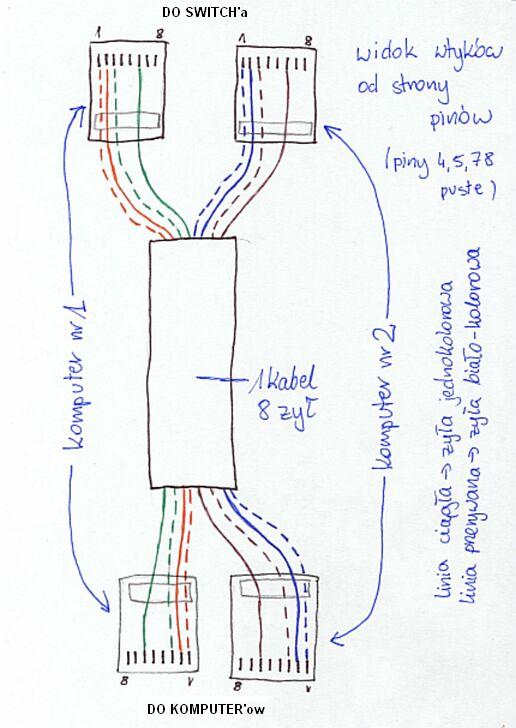 DO SWITCH'a
1 8
1 8
widok wtyków
od strony
pinów
(piny 4,5,78
puste)
Komputer nr 1
Komputer nr 2
1 Kabel
8 żył
linia ciągła → żyła jednokolorowa
linia przerywana → żyła biało-kolorowa
8 1
8 1
DO KOMPUTER'ow